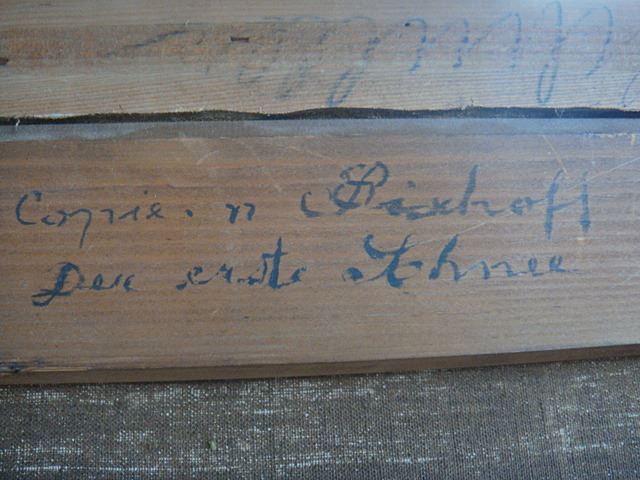 Copie. n Bischoff
Der erste Schnee